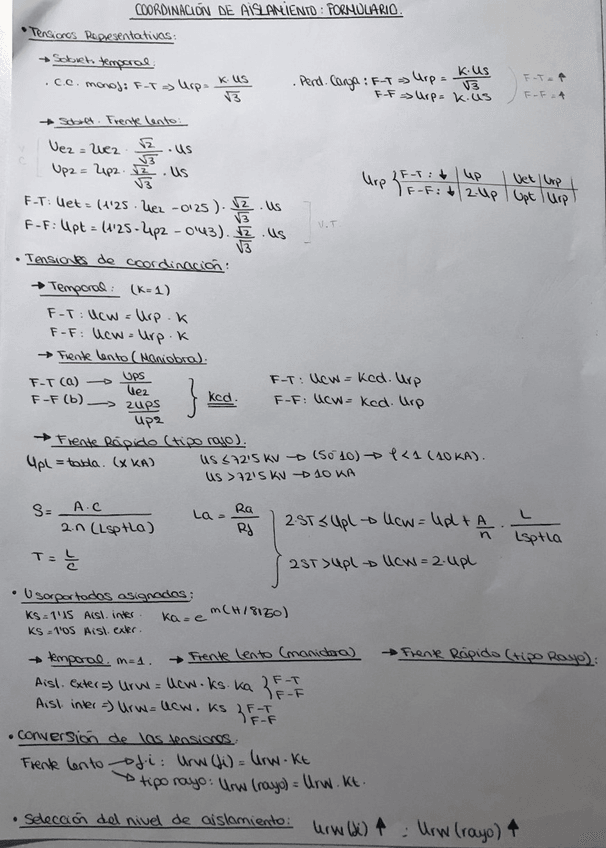 COORDINACIÓN DE AISLAMIENTO: FORMULARIO.
• Tensiones Representativas:
→ Sobret. temporal:
. C.C. monof: F-T ⇒ Urp = K·Us/√3
. Perd. Carga: F-T ⇒ Urp = K·Us/√3
F-F ⇒ Urp = K·Us
F-T = ↑
F-F = ↑
→ Sobret. Frente lento:
Ue2 = ue2 · √2/√3 · Us
Up2 = up2 · √2/√3 · Us
F-T: Uet = (1'25 · ue2 - 0'25) · √2/√3 · Us
F-F: Upt = (1'25 · up2 - 0'43) · √2/√3 · Us
V.T
Urp { F-T: ↓ | Up | Uet | Urp
F-F: ↓ | 2·Up | Upt | Urp
• Tensiones de coordinación:
→ Temporal: (K=1)
F-T: Ucw = Urp · K
F-F: Ucw = Urp · K
→ Frente lento (Maniobra):
F-T (a) → Ups/Ue2
F-F (b) → 2Ups/Up2
} Kcd.
F-T: Ucw = Kcd · Urp
F-F: Ucw = Kcd · Urp
→ Frente Rápido (tipo rayo):
Upl = tabla. (x KA)
Us ≤ 72'5 KV → (5 o 10) → f < 1 (10 KA).
Us > 72'5 KV → 10 KA
S = A·C/2·n (Lsp+La)
La = Ra/Rf
2·ST ≤ Upl → Ucw = Upl + A/n · L/Lsp+La
T = L/C
2ST > Upl → Ucw = 2·Upl
• U soportadas asignadas:
KS = 1'15 Aisl. inter.
KS = 1'05 Aisl. exter.
Ka = e^m(H/8150)
→ temporal. m=1.
→ Frente Lento (maniobra)
→ Frente Rápido (tipo Rayo):
Aisl. exter ⇒ Urw = Ucw · Ks · Ka } F-T
F-F
Aisl. inter ⇒ Urw = Ucw · Ks } F-T
F-F
• Conversión de las tensiones:
Frente lento → f.i: Urw (fi) = Urw · Kt
→ tipo rayo: Urw (rayo) = Urw · Kt.
• Selección del nivel de aislamiento: Urw (fi) ↑ : Urw (rayo) ↑